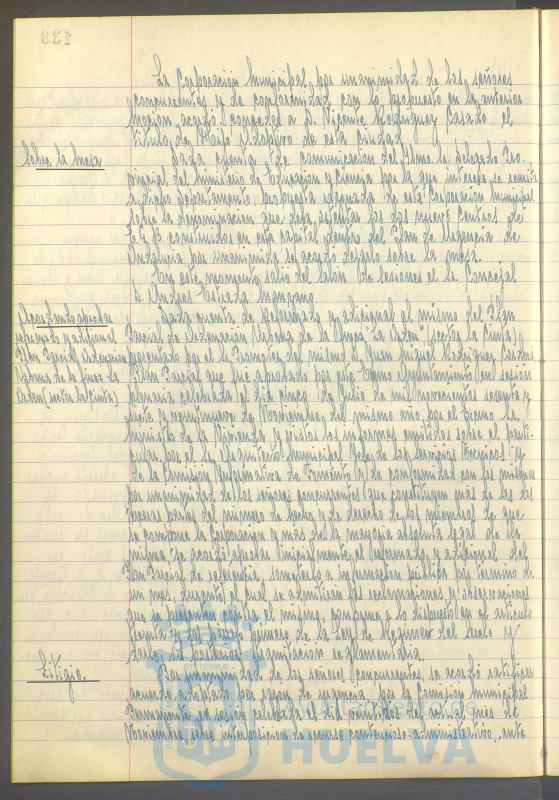 139
La Corporación Municipal por unanimidad de los señores
concurrentes y de conformidad con lo propuesto en la anterior
moción, acordó conceder a D. Vicente Rodríguez Casado el
título de Hijo Adoptivo de esta Ciudad.
Sobre la mesa
Dada cuenta de comunicación del Iltmo. Sr. Delegado Pro-
vincial del Ministerio de Educación y Ciencia por la que interesa se remita
a dicho departamento propuesta razonada de esta Corporación Municipal
sobre la denominación que deba ostentar los dos nuevos Centros de
E.G.B. construidos en esta capital dentro del Plan de Urgencia de
Andalucía por unanimidad se acordó dejarlo sobre la mesa.
En este momento salió del Salón de Sesiones el Sr. Concejal
D. Andrés Estrada Manzano.
Acordando aprobar
reformado y adicional
Plan Parcial Ordenación
Urbana de la finca La
Orden (sector la Cinta)
Dada cuenta de Reformado y adicional al mismo del Plan
Parcial de Ordenación Urbana de la finca "La Orden" (sector la Cinta)
presentado por el Promotor del mismo D. Juan Miguel Rodríguez
Plan Parcial que fue aprobado por este Excmo. Ayuntamiento en sesión
plenaria celebrada el día cinco de Julio de mil novecientos setenta y
siete y veintinueve de Noviembre del mismo año por el Excmo. Sr.
Ministro de la Vivienda, y vistos los informes emitidos sobre el parti-
cular por el Sr. Arquitecto Municipal Jefe de los Servicios Técnicos y
de la Comisión Informativa de Fomento y de conformidad con los mismos
por unanimidad de los señores concurrentes que constituyen más de las dos
terceras partes del número de hecho y de derecho de los miembros de que
se compone la Corporación y más de la mayoría absoluta legal de la
misma se acordó aprobar inicialmente el reformado y adicional del
Plan Parcial de referencia, someterlo a información pública por término de
un mes, durante el cual se admitirán las reclamaciones y observaciones
que se presenten contra el mismo, conforme a lo dispuesto en el artículo
treinta y dos párrafo primero de la Ley de Régimen del Suelo y
darle su posterior tramitación reglamentaria.
Litigio.
Por unanimidad de los señores concurrentes se acordó ratificar
acuerdo adoptado por razón de urgencia, por la Comisión Municipal
Permanente en sesión celebrada el día veintidós del actual mes de
Noviembre, sobre interposición de recurso contencioso-administrativo, ante
Ayuntamiento de
HUELVA